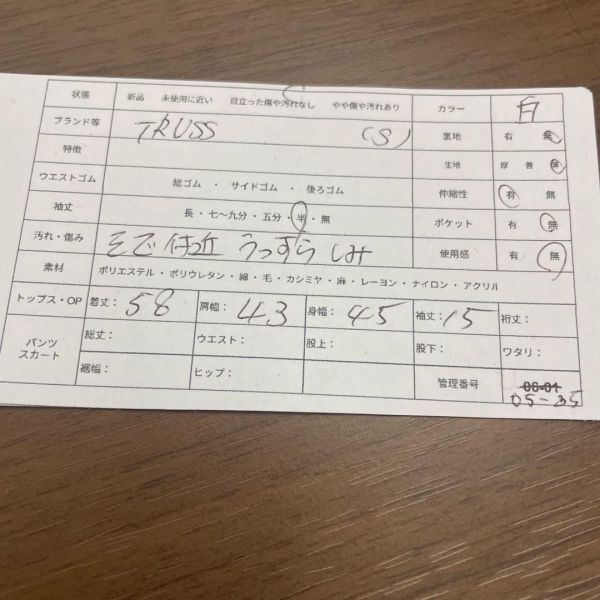 状態 新品 未使用に近い 目立った傷や汚れなし やや傷や汚れあり カラー 白
ブランド等 TRUSS (S) 裏地 有 無
特徴 生地 厚 普 薄
ウエストゴム 総ゴム ・ サイドゴム ・ 後ろゴム 伸縮性 有 無
袖丈 長 ・ 七〜九分 ・ 五分 ・ 半 ・ 無 ポケット 有 無
汚れ・傷み そで付近 うっすら しみ 使用感 有 無
素材 ポリエステル ・ ポリウレタン ・ 綿 ・ 毛 ・ カシミヤ ・ 麻 ・ レーヨン ・ ナイロン ・ アクリル
トップス・OP 着丈： 58 肩幅： 43 身幅： 45 袖丈： 15 裄丈：
パンツ スカート 総丈： ウエスト： 股上： 股下： ワタリ：
裾幅： ヒップ： 管理番号 06-01
05-35